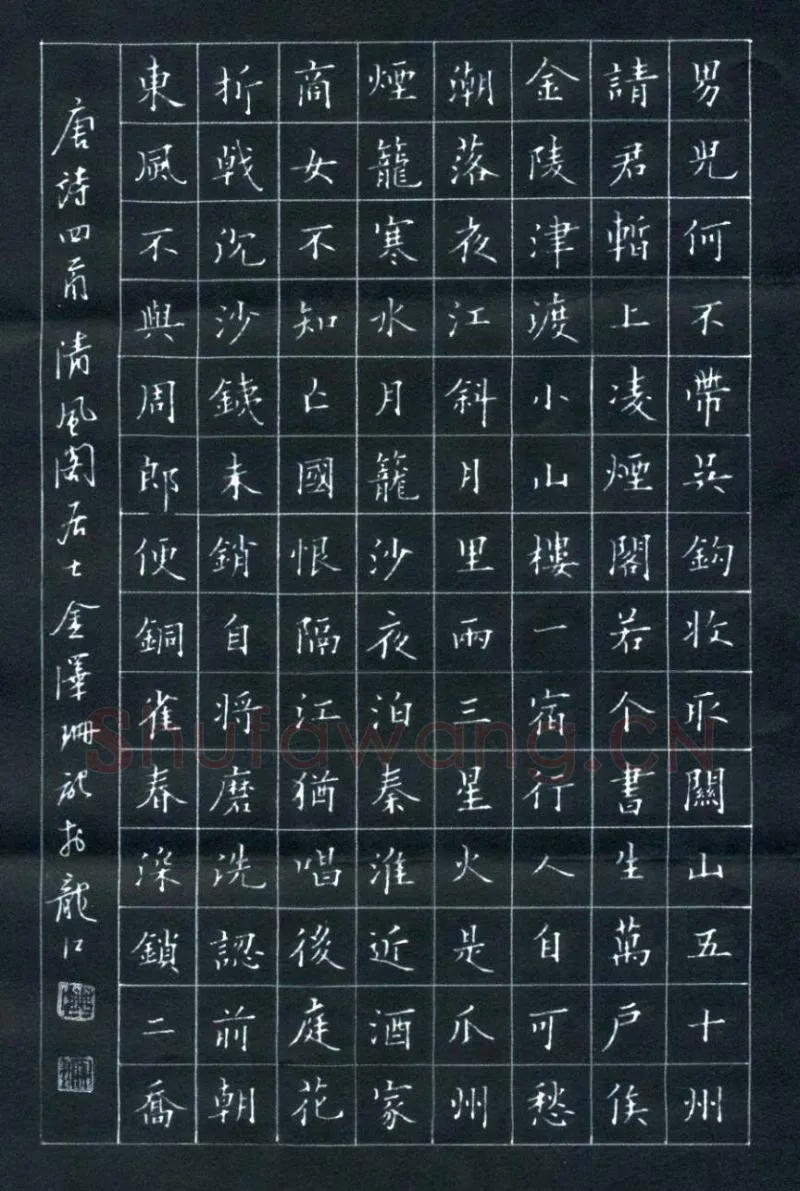 男兒何不帶吳鈎收取關山五十州
請君暫上凌煙閣若个書生萬戶侯
金陵津渡小山樓一宿行人自可愁
潮落夜江斜月里兩三星火是瓜州
煙籠寒水月籠沙夜泊秦淮近酒家
商女不知亡國恨隔江猶唱後庭花
折戟沉沙銕未銷自将磨洗認前朝
東風不與周郎便銅雀春深鎖二喬
唐詩四首清風閣居士金澤珊於龍江
Shufawang.CN